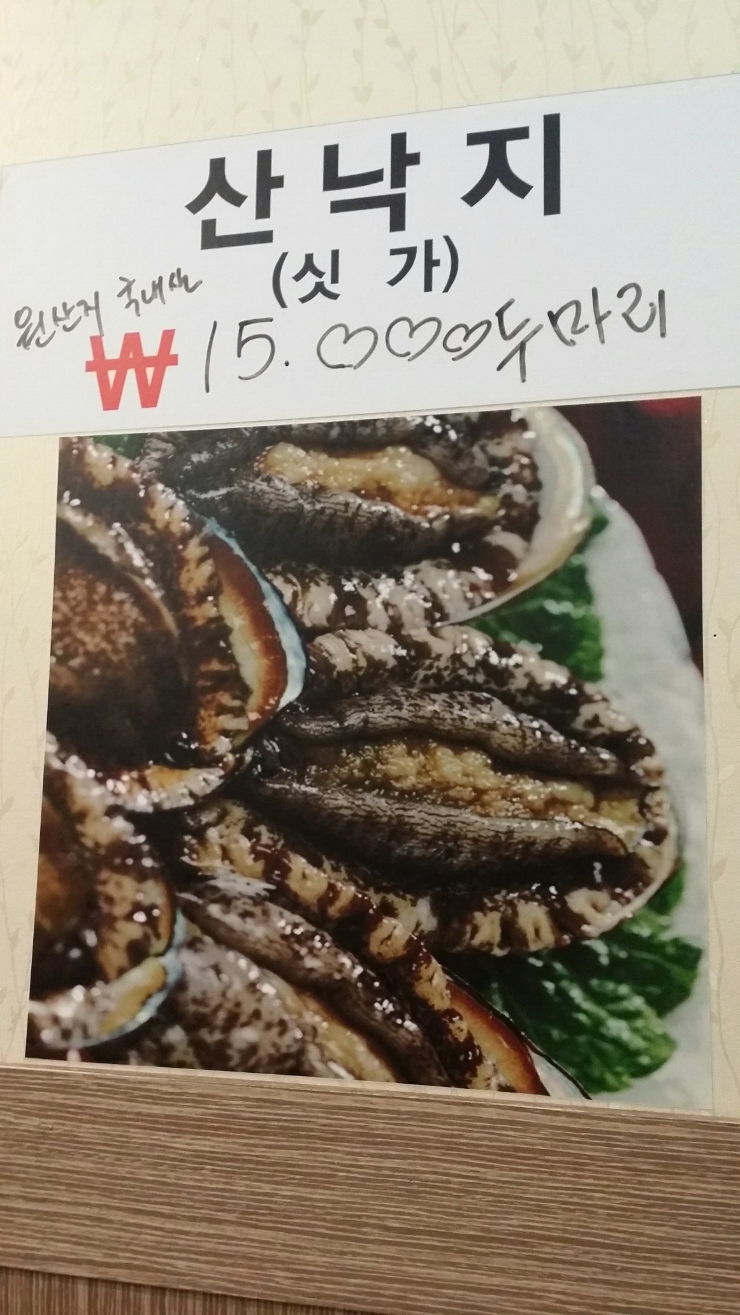 산낙지
(싯 가)
원산지 국내산
₩ 15.000 두마리